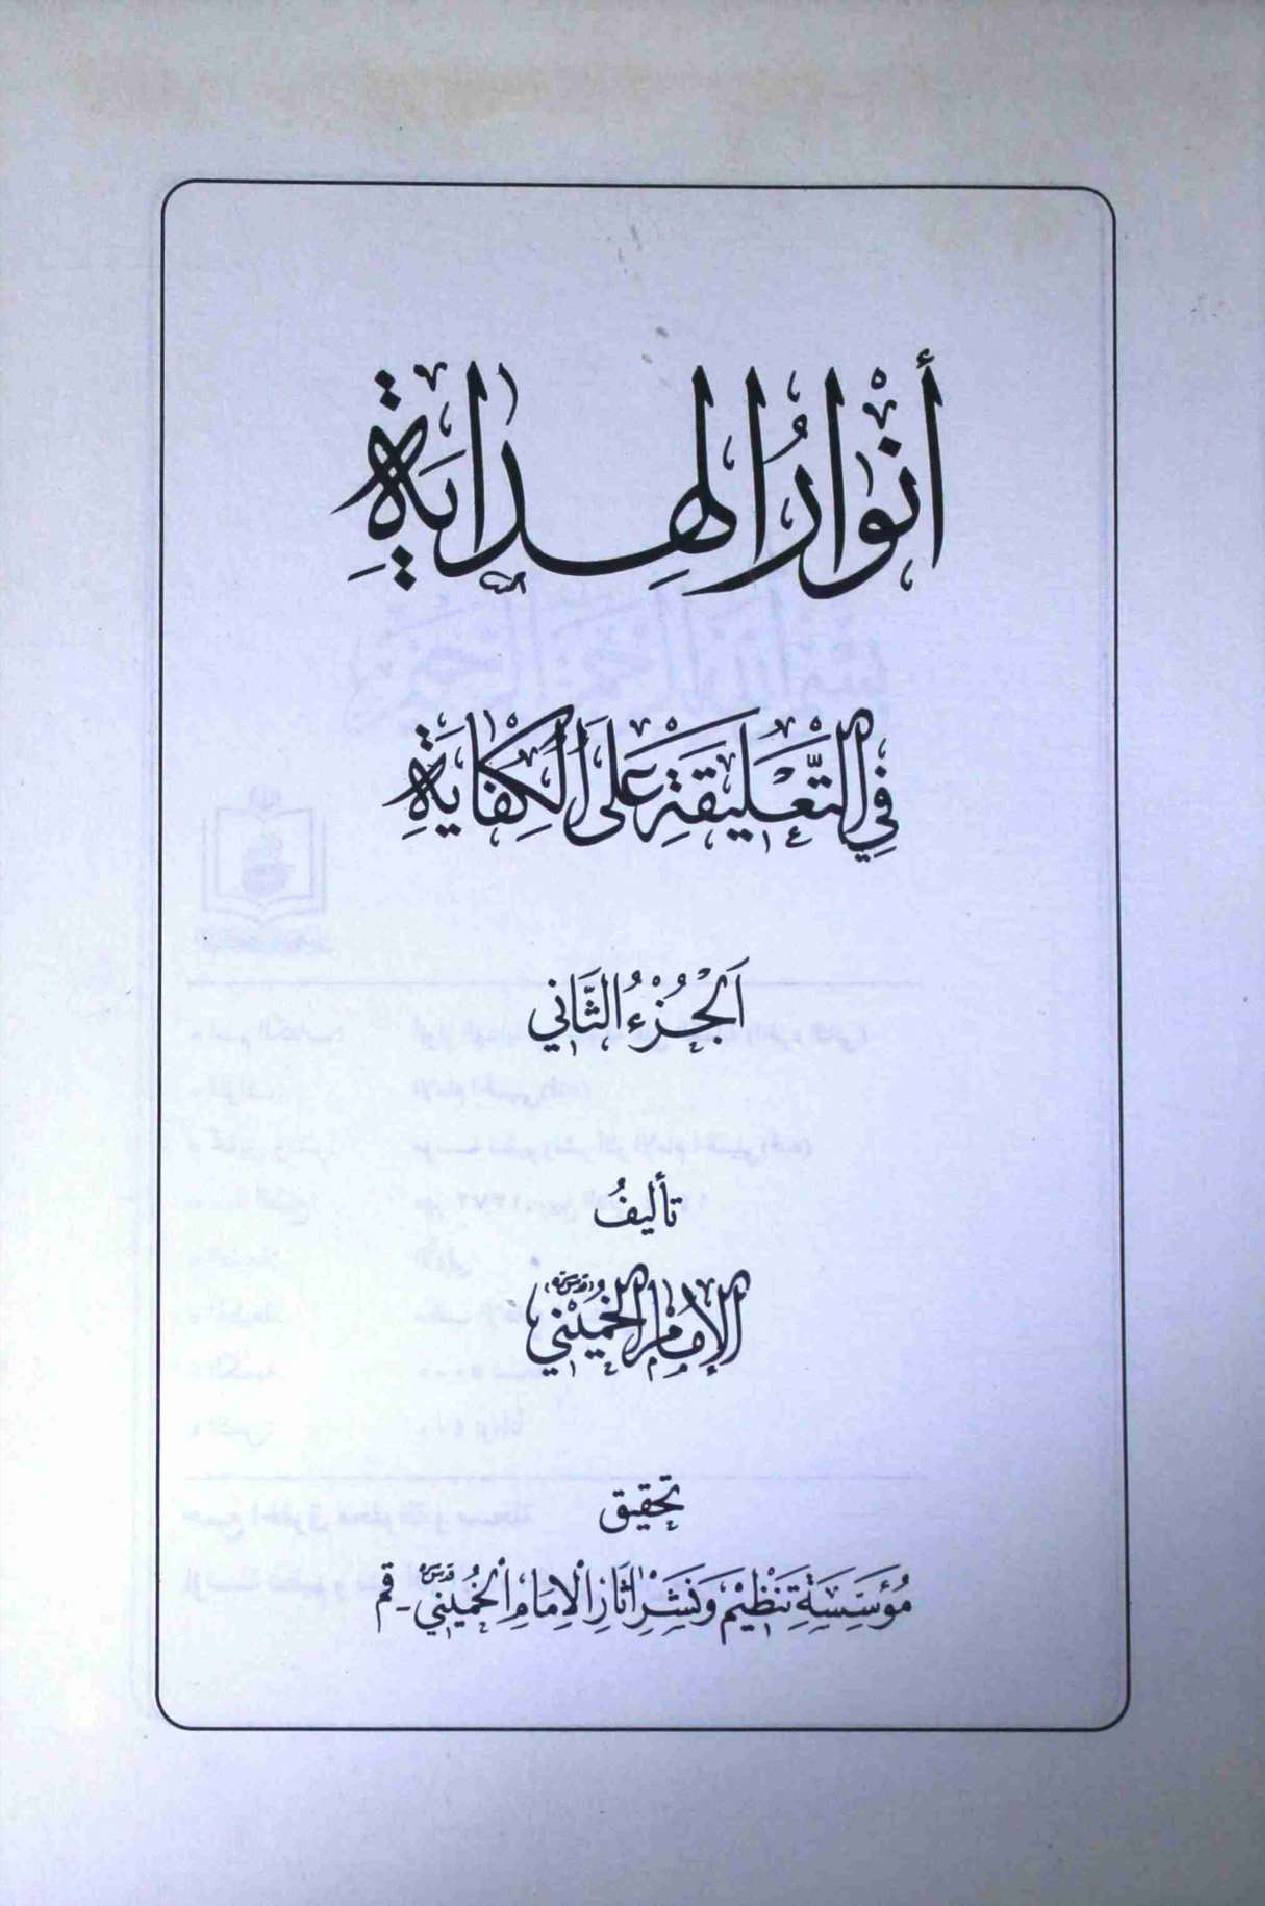 أنوار الهداية
في التعليقة على الكفاية
الجزء الثاني
تأليف
الإمام الخميني (قدس سره)
تحقيق
مؤسسة تنظيم ونشر آثار الإمام الخميني قدس سره - قم